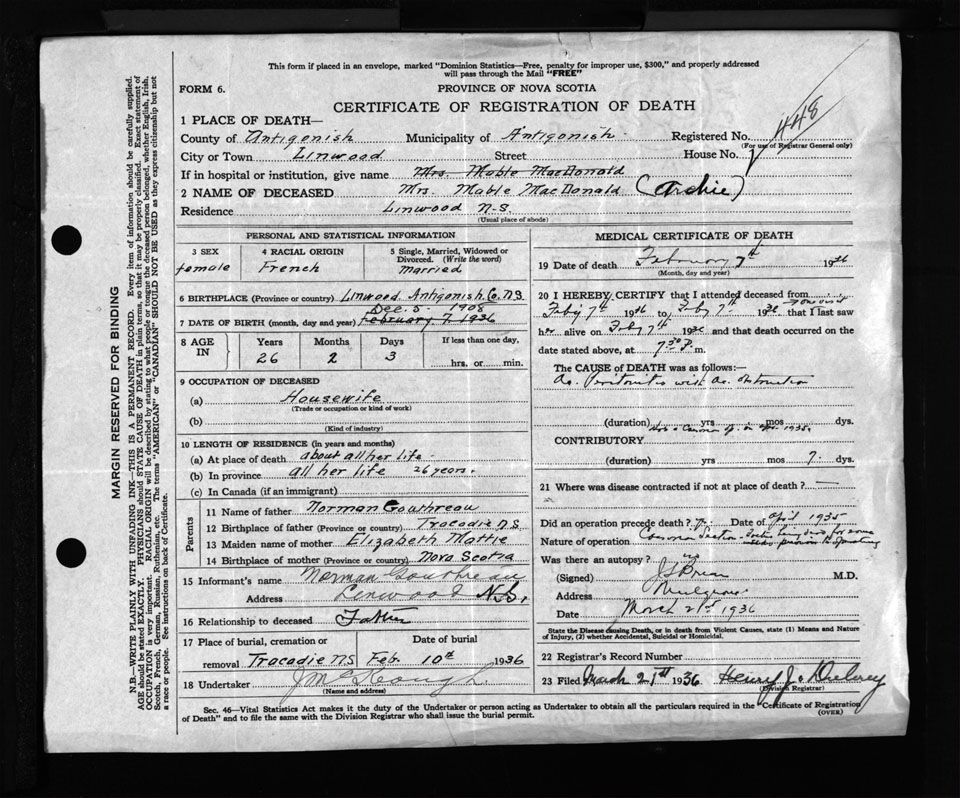 This form if placed in an envelope, marked "Dominion Statistics—Free, penalty for improper use, $300," and properly addressed
will pass through the Mail "FREE"
FORM 6.
PROVINCE OF NOVA SCOTIA
CERTIFICATE OF REGISTRATION OF DEATH
448
1 PLACE OF DEATH—
County of Antigonish Municipality of Antigonish Registered No.
(For use of Registrar General only)
City or Town Linwood Street House No.
If in hospital or institution, give name Mrs. Mable MacDonald
2 NAME OF DECEASED Mrs. Mable MacDonald (Archie)
Residence Linwood N.S.
(Usual place of abode)
MARGIN RESERVED FOR BINDING
N.B.—WRITE PLAINLY WITH UNFADING INK—THIS IS A PERMANENT RECORD. Every item of information should be carefully supplied.
AGE should be stated EXACTLY. PHYSICIANS should STATE CAUSE OF DEATH in plain terms, so that it may be properly classified. Exact statement of
OCCUPATION is very important. RACIAL ORIGIN will be described by stating to what people or tongue the deceased person belonged, whether English, Irish,
Scotch, French, German, Russian, Ruthenian, etc. The terms "AMERICAN" or "CANADIAN" SHOULD NOT BE USED as they express citizenship but not
a race or people. See instructions on back of Certificate.
PERSONAL AND STATISTICAL INFORMATION
3 SEX
female
4 RACIAL ORIGIN
French
5 Single, Married, Widowed or
Divorced. (Write the word)
married
6 BIRTHPLACE (Province or country) Linwood, Antigonish Co. N.S.
Dec. 5 1908
7 DATE OF BIRTH (month, day and year) February 7, 1936
8 AGE
IN
Years Months Days If less than one day,
26 2 3 hrs. or min.
9 OCCUPATION OF DECEASED
(a) Housewife
(Trade or occupation or kind of work)
(b)
(Kind of industry)
10 LENGTH OF RESIDENCE (in years and months)
(a) At place of death about all her life
(b) In province all her life 26 years.
(c) In Canada (if an immigrant)
Parents
11 Name of father Norman Gouthreau
12 Birthplace of father (Province or country) Tracadie N.S.
13 Maiden name of mother Elizabeth Mattie
14 Birthplace of mother (Province or country) Nova Scotia
15 Informant's name Norman Gouthreau
Address Linwood N.S.
16 Relationship to deceased Father
17 Place of burial, cremation or Date of burial
removal Tracadie N.S Feb. 10th 1936
18 Undertaker
(Name and address)
MEDICAL CERTIFICATE OF DEATH
19 Date of death February 7th 1936
(Month, day and year)
20 I HEREBY CERTIFY that I attended deceased from
Feby 7th 1936 to Feby 7th 1936 that I last saw
her alive on Feby 7th 1936 and that death occurred on the
date stated above, at 7.30 P. m.
The CAUSE OF DEATH was as follows:—
Ac. Peritonitis with Ac. obstruction
(duration) yrs mos dys.
1935.
CONTRIBUTORY
(duration) yrs mos 7. dys.
21 Where was disease contracted if not at place of death?
Did an operation precede death? Date of April 1935
Nature of operation
Was there an autopsy? no
(Signed) M.D.
Address Mulgrave
Date March 21st 1936
State the Disease causing Death, or in death from Violent Causes, state (1) Means and Nature
of Injury, (2) whether Accidental, Suicidal or Homicidal.
22 Registrar's Record Number
23 Filed March 21st 1936 Henry J.
(Division Registrar)
Sec. 46—Vital Statistics Act makes it the duty of the Undertaker or person acting as Undertaker to obtain all the particulars required in the Certificate of Registration
of Death" and to file the same with the Division Registrar who shall issue the burial permit.
(OVER)